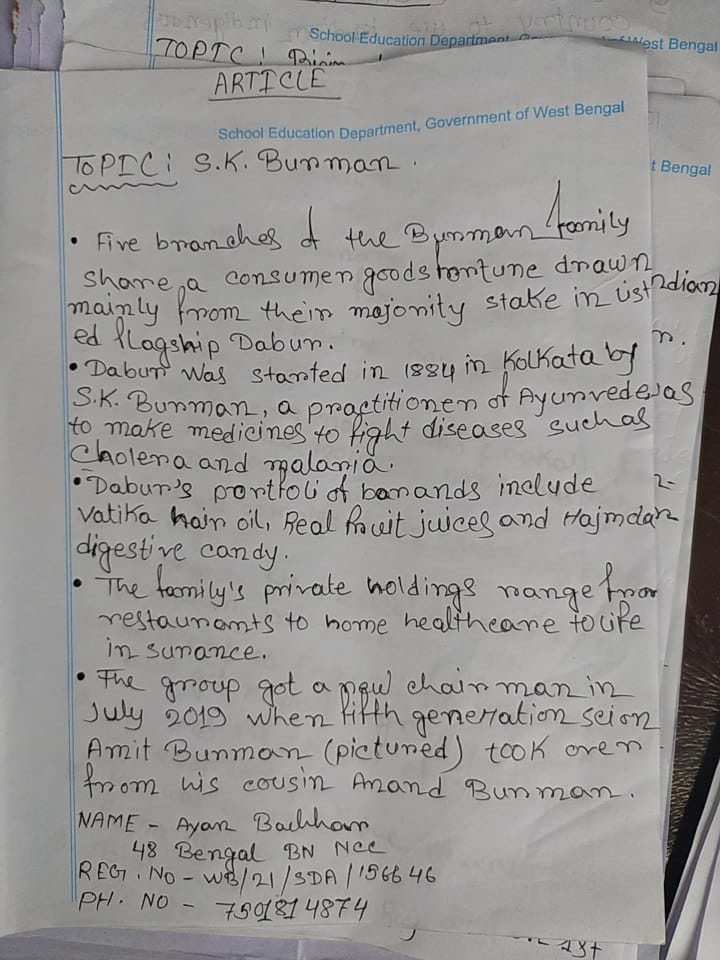 School Education Department
West Bengal
TOPIC :
ARTICLE
School Education Department, Government of West Bengal
t Bengal
TOPIC : S.K. Burman .
• Five branches of the Burman family
share a consumer goods fortune drawn
mainly from their majority stake in list
ndian
ed flagship Dabur.
n.
• Dabur was started in 1884 in Kolkata by
S.K. Burman, a practitioner of Ayurveda, as
to make medicines to fight diseases such as
Cholera and malaria.
• Dabur's portfoli of barands include
Vatika hair oil, Real fruit juices and Hajmdar
digestive candy.
• The family's private holdings range from
restaurants to home healthcare to life
in surance.
• The group got a new chair man in
July 2019 when fifth generation scion
Amit Burman (pictured) took over
from his cousin Anand Burman.
NAME - Ayan Bachhar
48 Bengal BN NCC
REGT. NO - WB/21/SDA/156646
PH. NO - 7501814874